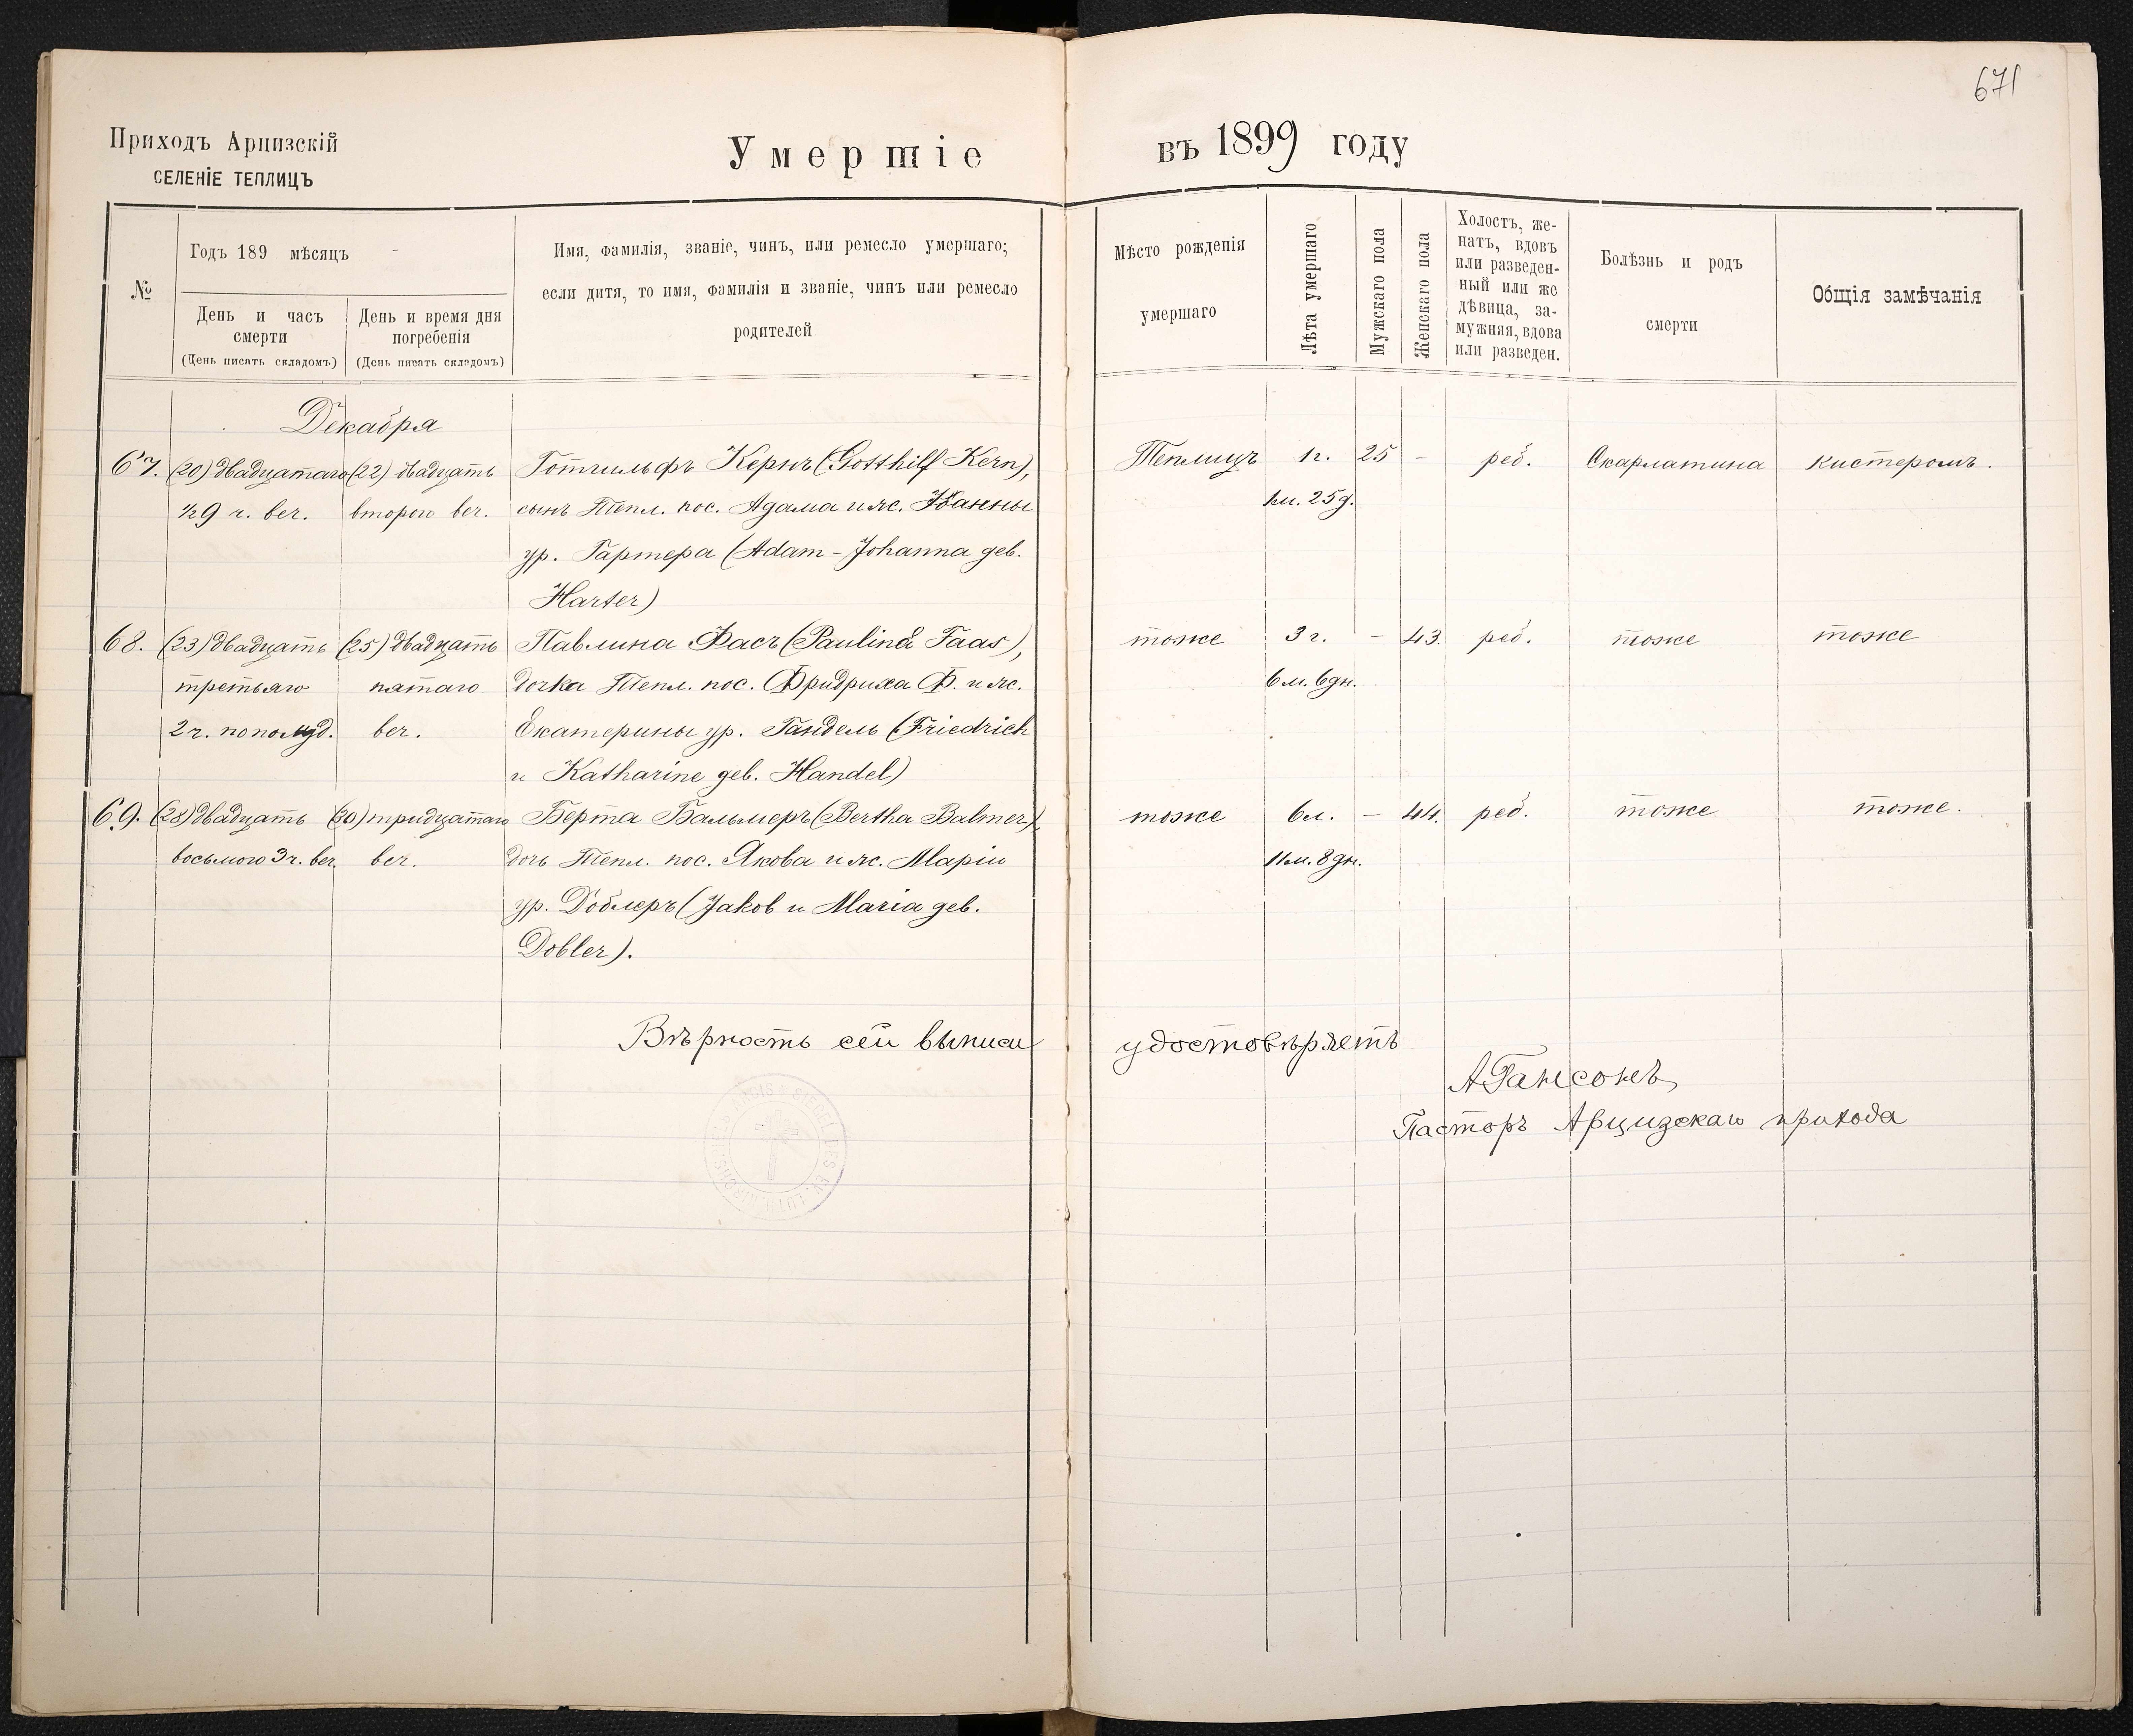 671
Приходъ Арцизскій
СЕЛЕНІЕ ТЕПЛИЦЪ
Умершіе въ 1899 году
№
Годъ 189 мѣсяцъ -
День и часъ смерти
(День писать складомъ)
День и время дня погребенія
(День писать складомъ)
Имя, фамилія, званіе, чинъ, или ремесло умершаго;
если дитя, то имя, фамилія и званіе, чинъ или ремесло
родителей
Мѣсто рожденія
умершаго
Лѣта умершаго
Мужскаго пола
Женскаго пола
Холостъ, же-
натъ, вдовъ
или разведен-
ный или же
дѣвица, за-
мужняя, вдова
или разведен.
Болѣзнь и родъ
смерти
Общія замѣчанія
Декабря
67. (20) двадцатаго (22) двадцать Готгильфъ Кернъ (Gotthilf Kern), Теплицъ 1г. 25 - реб. Скарлатина кистеромъ.
½9 ч. веч. второго веч. сынъ Тепл. пос. Адама и ж. Іоанны 1м. 25д.
ур. Гартера (Adam - Johanna geb.
Harter)
68. (23) двадцать (25) двадцать Павлина Фасъ (Paulina Faas), тоже 3 г. - 43. реб. тоже тоже
третьяго пятаго дочка Тепл. пос. Фридриха Ф. и ж. 6 м. 6 дн.
2 ч. пополуд. веч. Екатерины ур. Гандель (Friedrich
и Katharine geb. Handel)
69. (28) двадцать (30) тридцатаго Берта Бальмеръ (Bertha Balmer), тоже 6 л. - 44. реб. тоже тоже.
восьмого 3 ч. веч. веч. дочь Тепл. пос. Якова и ж. Маріи 11 м. 8 дн.
ур. Доблеръ (Jakob и Maria geb.
Dobler).
Вѣрность сей выписи удостовѣряетъ
А Гансонъ,
Пасторъ Арцизскаго прихода